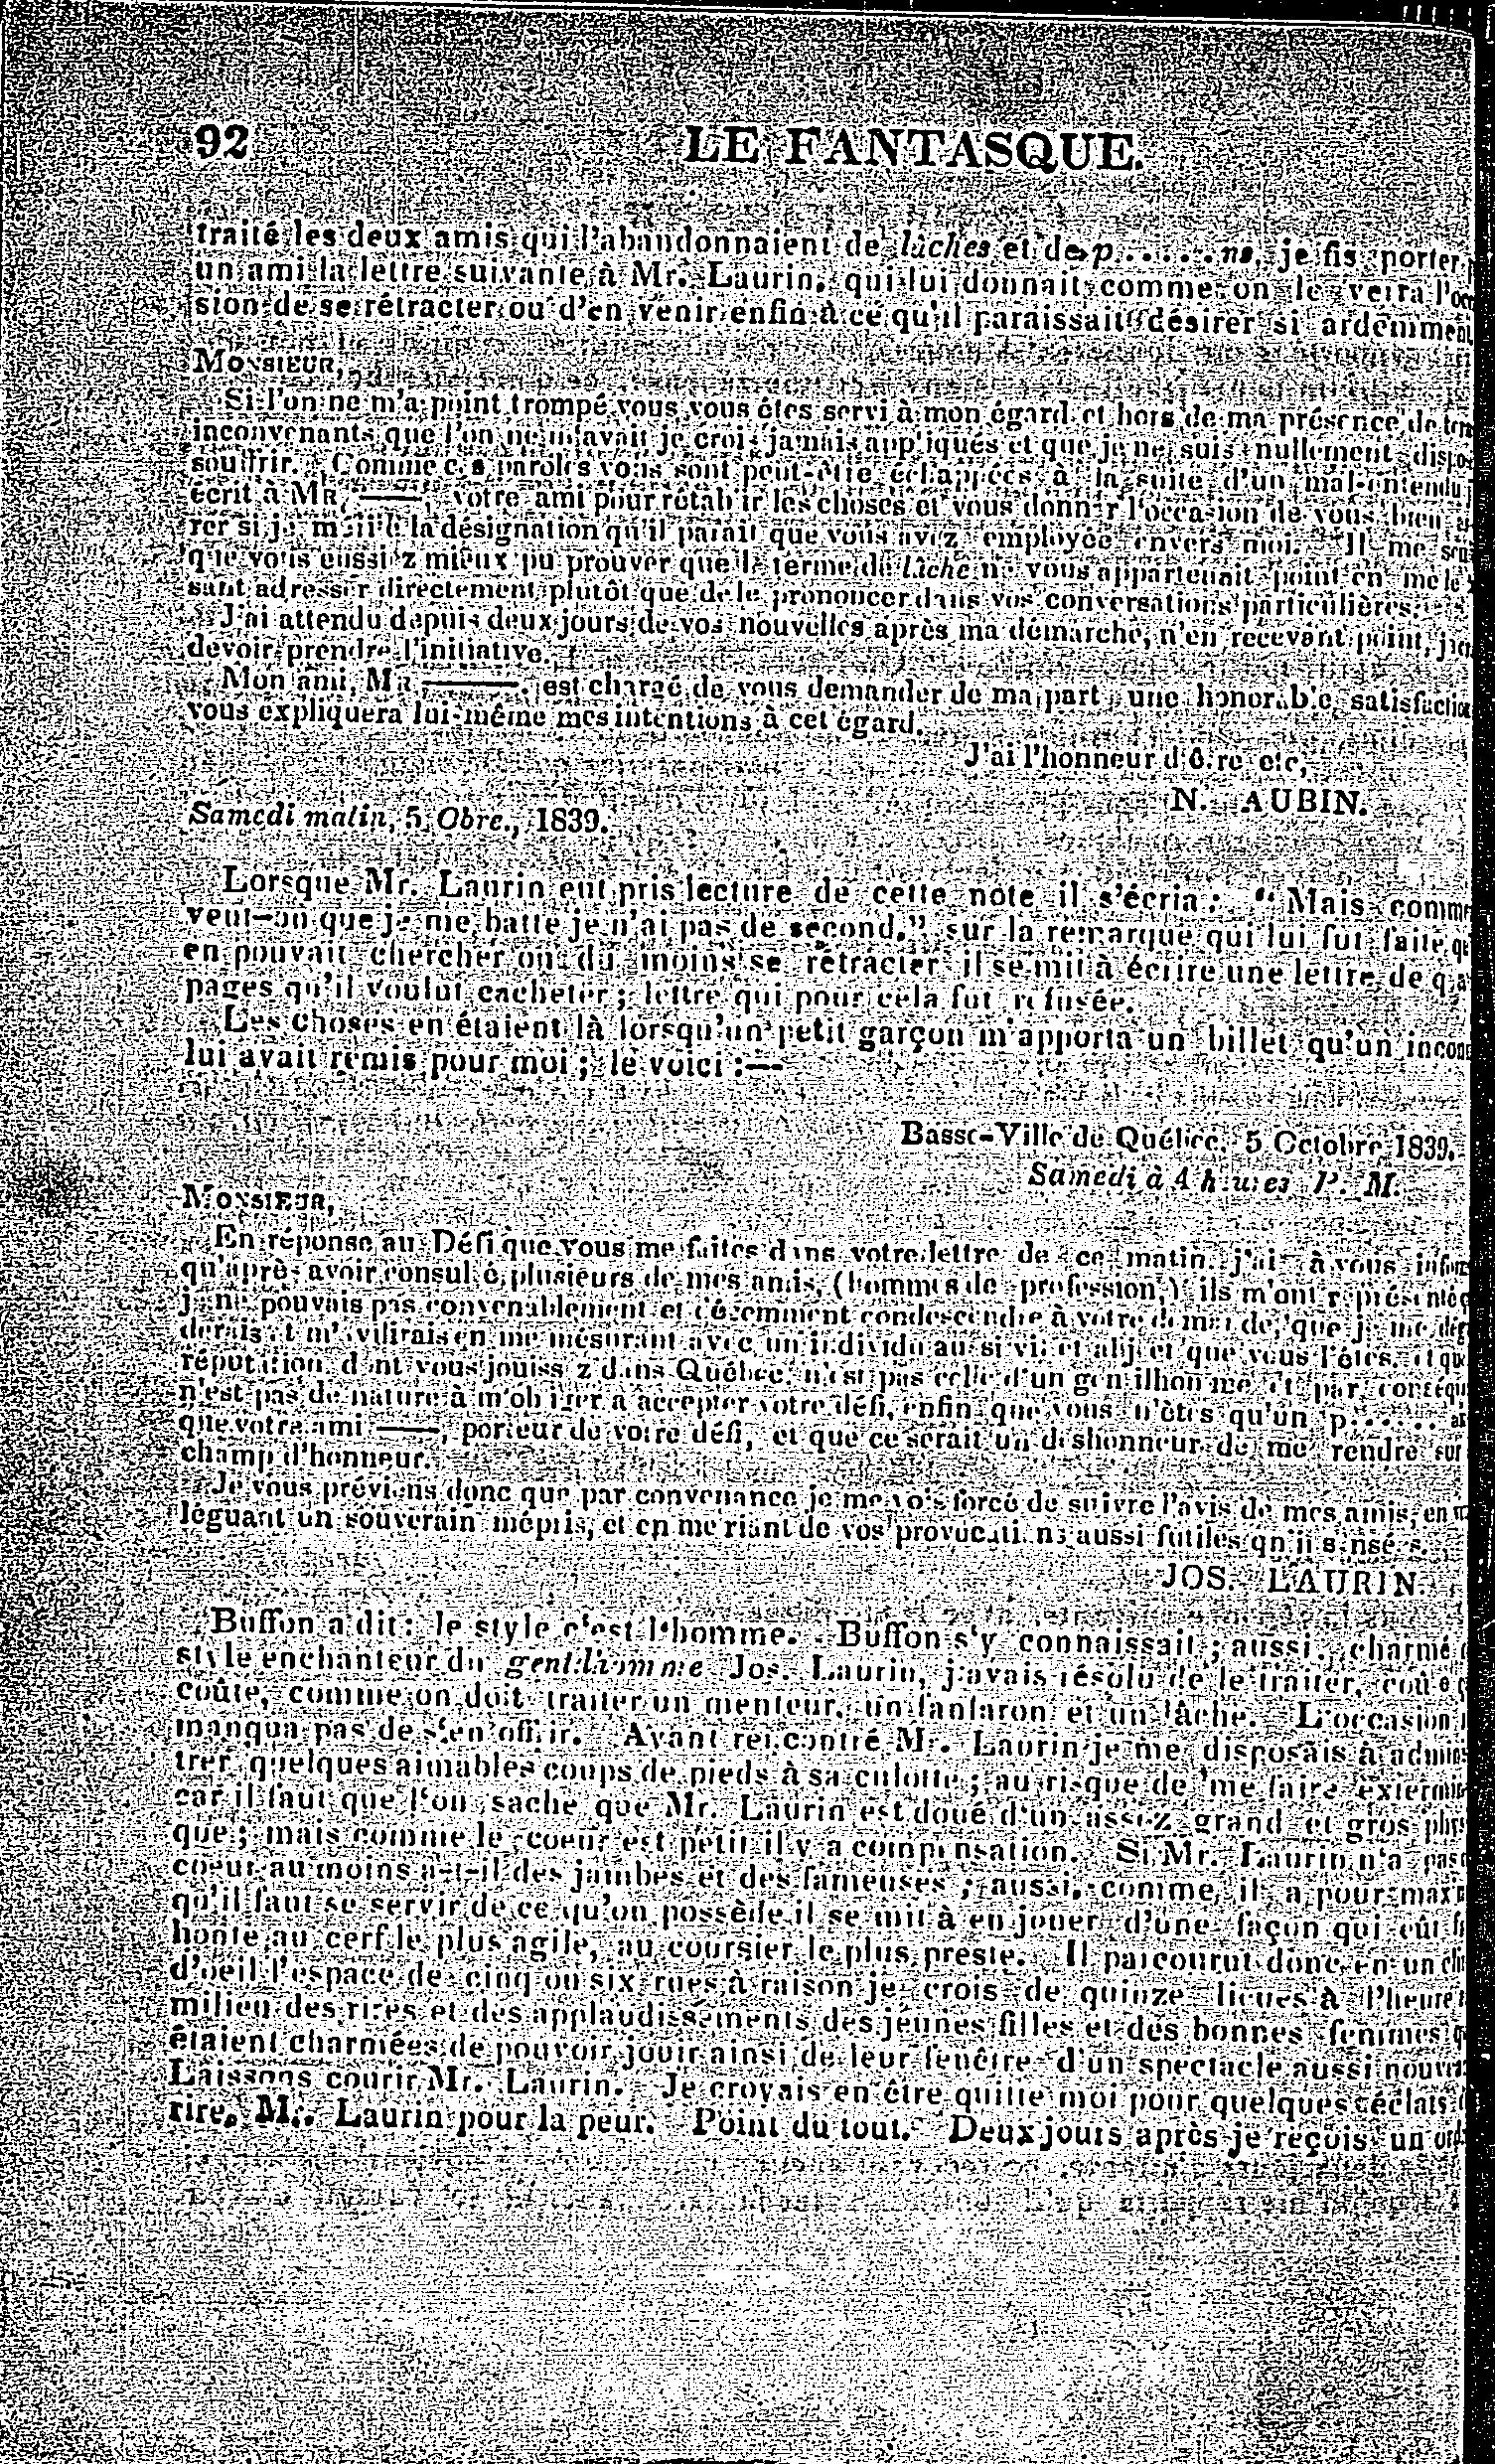 92 LE FANTASQUE.
traité les deux amis qui l'abandonnaient de lâches et de p......ns, je fis porter
un ami la lettre suivante à Mr. Laurin, qui lui donnait, comme on le verra l'oc
sion de se rétracter ou d'en venir enfin à ce qu'il paraissait désirer si ardemment
MONSIEUR,
Si l'on ne m'a point trompé vous vous êtes servi à mon égard et hors de ma présence de
inconvenants que l'on ne m'avait je crois jamais appliqués et que je ne suis nullement
souffrir. Comme ces paroles vous sont peut-être échappées à la suite d'un mal-entendu
écrit à MR. ——, votre ami pour rétablir les choses et vous donner l'occasion de vous bien
rer si je méritte la désignation qu'il parait que vous avez employée envers moi. Il me
que vous eussiez mieux pu prouver que le terme de lâche ne vous appartenait point en me le
sant adresser directement plutôt que de le prononcer dans vos conversations particulières.
J'ai attendu depuis deux jours de vos nouvelles après ma démarche, n'en recevant point,
devoir prendre l'initiative.
Mon ami, MR. ———. est chargé de vous demander de ma part une honorable satisfaction
vous expliquera lui-même mes intentions à cet égard.
J'ai l'honneur d'être etc,
N. AUBIN.
Samedi matin, 5 Obre., 1839.
Lorsque Mr. Laurin eut pris lecture de cette note il s'écria: "Mais comme
veut-on que je me batte je n'ai pas de second." sur la remarque qui lui fut faite
en pouvait chercher ou du moins se rétracter il se mit à écrire une lettre de
pages qu'il voulut cacheter; lettre qui pour cela fut refusée.
Les choses en étaient là lorsqu'un petit garçon m'apporta un billet qu'un incon
lui avait remis pour moi; le voici:—
Basse-Ville de Québec, 5 Octobre 1839.
Samedi à 4 heures P. M.
MONSIEUR,
En réponse au Défi que vous me faites dans votre lettre de ce matin, j'ai à vous infor
qu'après avoir consulté plusieurs de mes amis, (hommes de profession,) ils m'ont représenté
je ne pouvais pas convenablement et décemment condescendre à votre demande, que je me dég
derais et m'aviliraisen me mésurant avec un individu aussi vil et abject que vous l'êtes, et que
réputation dont vous jouissez dans Québec, n'est pas celle d'un gentilhomme et par conséqu
n'est pas de nature à m'obliger à accepter votre défi, enfin que vous n'êtes qu'un p......
que votre ami ——, porteur de votre défi, et que ce serait un deshonneur de me rendre sur
champ d'honneur.
Je vous préviens donc que par convenance je me vois forcé de suivre l'avis de mes amis, en
léguant un souverain mépris, et en me riant de vos provocations aussi futiles qu'insensées.
JOS. LAURIN.
Buffon a dit: le style c'est l'homme. Buffon s'y connaissait; aussi, charmé
style enchanteur du gentilhomme Jos. Laurin, j'avais résolu de le traiter, coûte
coûte, comme on doit traiter un menteur, un fanfaron et un lâche. L'occasion
manqua pas de s'en offrir. Ayant rencontré Mr. Laurin je me disposais à adminis
trer quelques aimables coups de pieds à sa culotte; au risque de me faire extermin
car il faut que l'on sache que Mr. Laurin est doué d'un assez grand et gros phys
que; mais comme le coeur est petit il y a compensation. Si Mr. Laurin n'a pas
coeur au moins a-t-il des jambes et des fameuses; aussi, comme il a pour maxi
qu'il faut se servir de ce qu'on possède il se mit à en jouer d'une façon qui eût
honte au cerf le plus agile, au coursier le plus preste. Il parcourut donc en un cli
d'oeil l'espace de cinq ou six rues à raison je crois de quinze lieues à l'heure
milieu des rires et des applaudissements des jeunes filles et des bonnes femmes
étaient charmées de pouvoir jouir ainsi de leur fenêtre d'un spectacle aussi nouv
Laissons courir Mr. Laurin. Je croyais en être quitte moi pour quelques éclats
rire, Mr. Laurin pour la peur. Point du tout. Deux jours après je reçois un ord